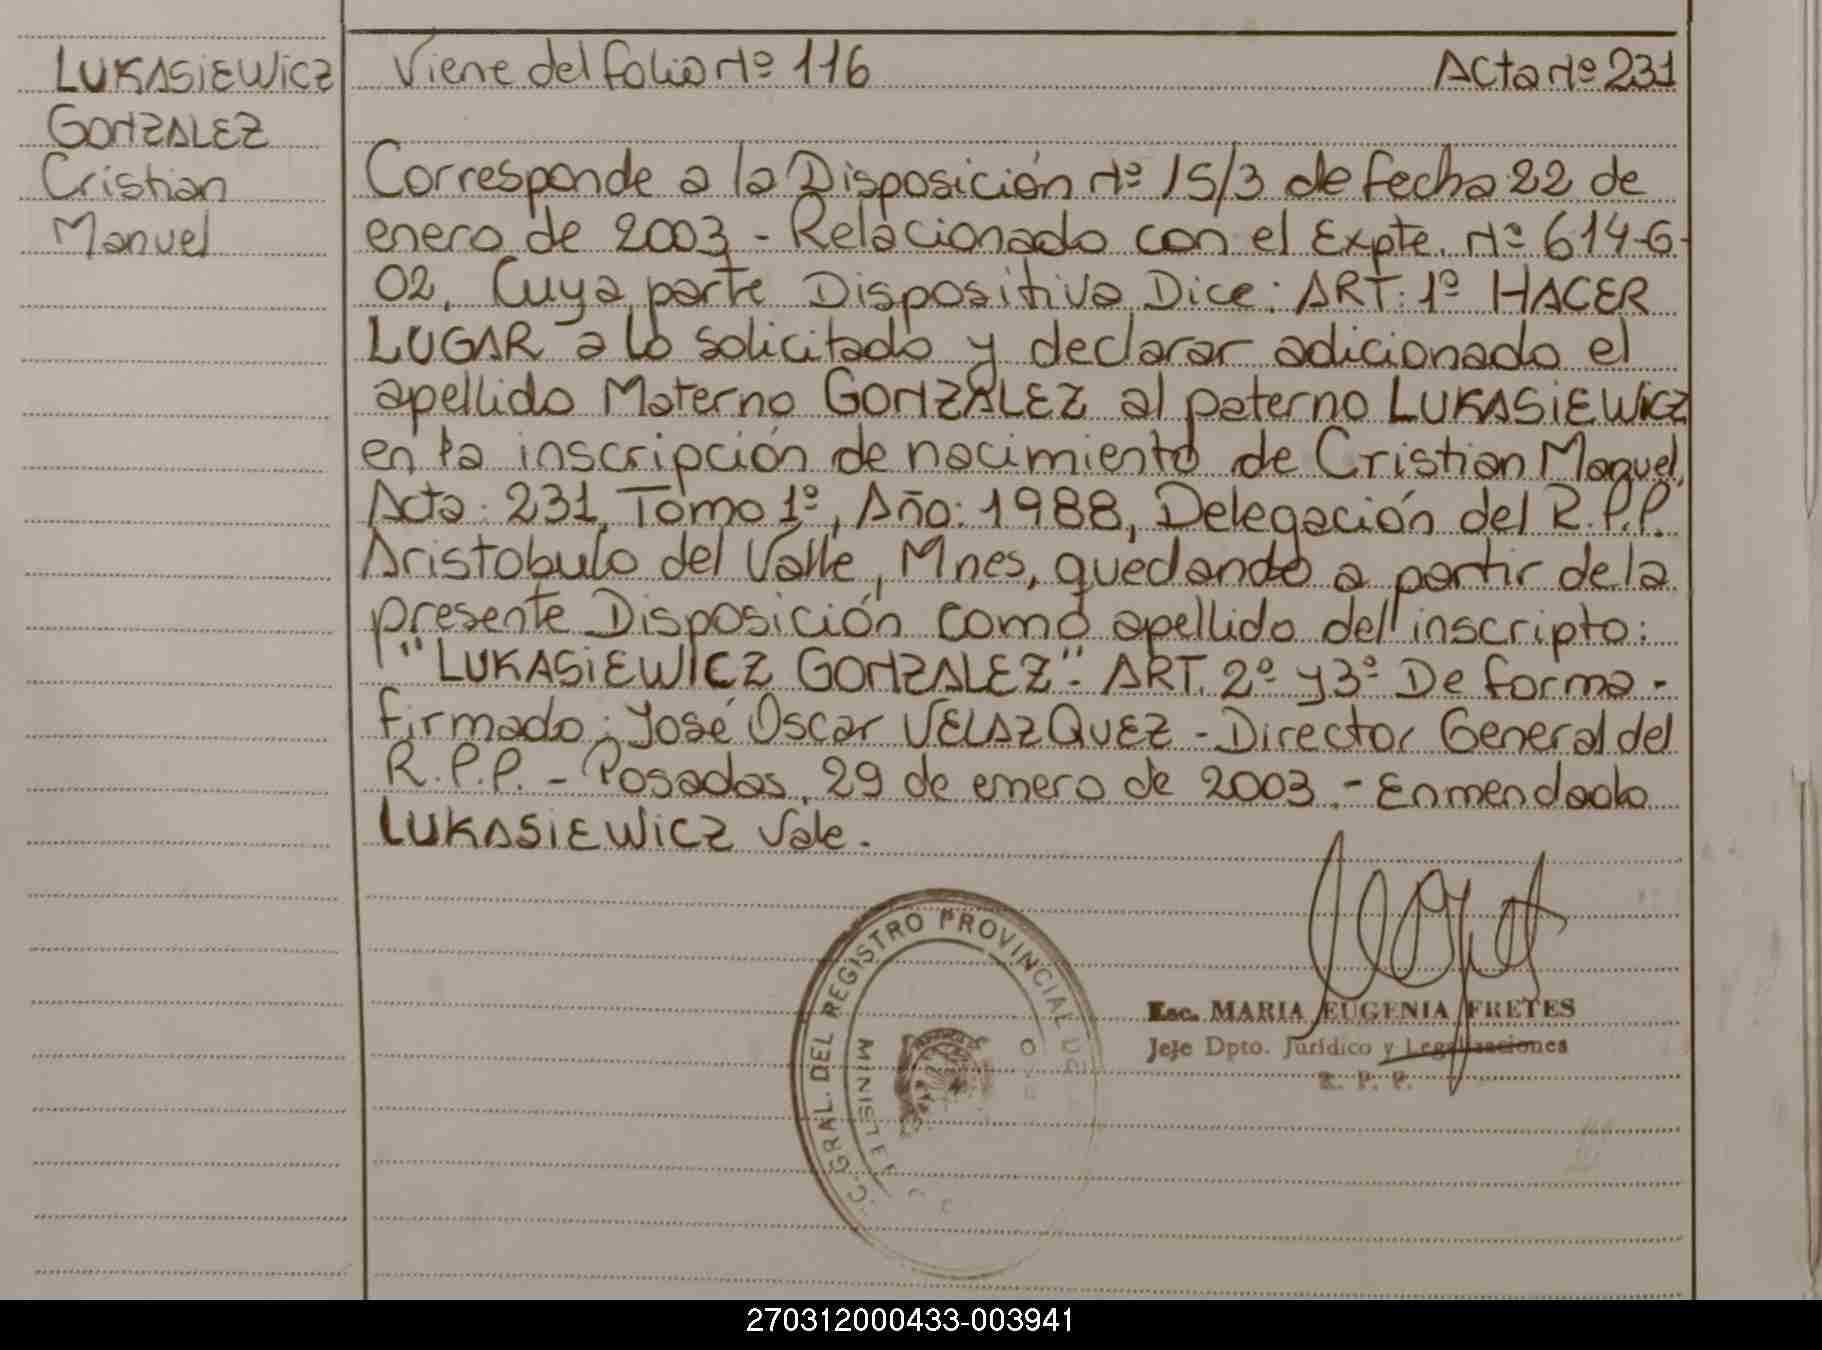 LUKASIEWICZ
GONZALEZ
Cristian
Manuel
Viene del folio Nº 116
Acta Nº 231
Corresponde a la Disposición Nº 15/3 de fecha 22 de
enero de 2003 - Relacionado con el Expte. Nº 614-G-
02, Cuya parte Dispositiva Dice: ART: 1º HACER
LUGAR a lo solicitado y declarar adicionado el
apellido Materno GONZALEZ al paterno LUKASIEWICZ
en la inscripción de nacimiento de Cristian Manuel,
Acta: 231, Tomo 1º, Año: 1988, Delegación del R.P.P.
Aristobulo del Valle, Mnes, quedando a partir de la
presente Disposición como apellido del inscripto:
"LUKASIEWICZ GONZALEZ". ART. 2º y 3º De forma -
firmado: José Oscar VELAZQUEZ - Director General del
R.P.P. - Posadas, 29 de enero de 2003 .- Enmendado
LUKASIEWICZ Vale.
GRAL. DEL REGISTRO PROVINCIAL DE
Esc. MARIA EUGENIA FRETES
Jefe Dpto. Jurídico y Legalizaciones
R. P. P.
270312000433-003941